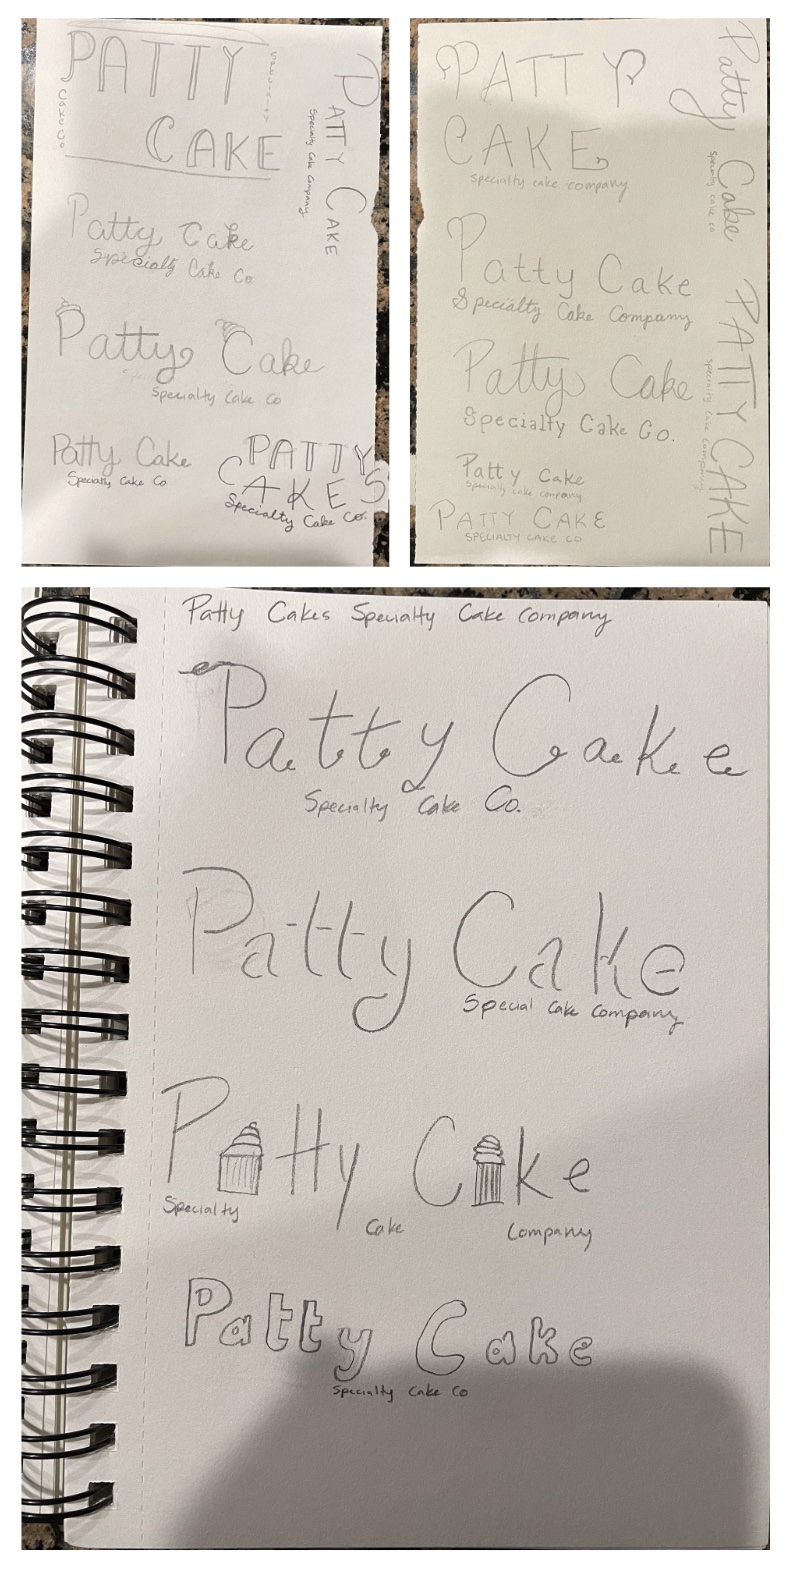 PATTY
CAKE
PATTY CAKE
Specialty Cake Company
Patty Cake
Specialty Cake Co
Patty Cake
Specialty Cake Co
Patty Cake
Specialty Cake Co
PATTY
CAKES
Specialty Cake Co.
PATTY
CAKE
Specialty cake company
Patty Cake
Specialty Cake Co
Patty Cake
Specialty Cake Company
Patty Cake
Specialty Cake Co.
PATTY CAKE
Specialty Cake Company
Patty Cake
Specialty cake company
PATTY CAKE
SPECIALTY CAKE CO
Patty Cakes Specialty Cake Company
Patty Cake
Specialty Cake Co.
Patty Cake
Special Cake Company
Patty Cake
Specialty Cake Company
Patty Cake
Specialty Cake Co